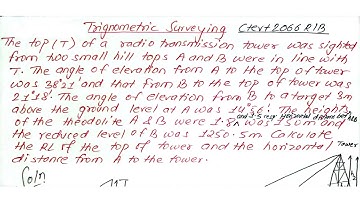 Trignometric Surveying Ctevt 2066 R1B
The top (T) of a radio transmission tower was sighted
from two small hill tops A and B were in line with
T. The angle of elevation from A to the top of tower
was 38°21' and that from B to the top of tower was
21°18'. The angle of elevation from B to a target 3m
above the ground level at A was 14°56'. The heights
and 3.5 resp Horizontal distance
of the theodolite A & B were 1.8m was 150m and
the reduced level of B was 1250.5m Calculate
the RL of the top of tower and the horizontal
distance from A to the tower.
Tower
Soln